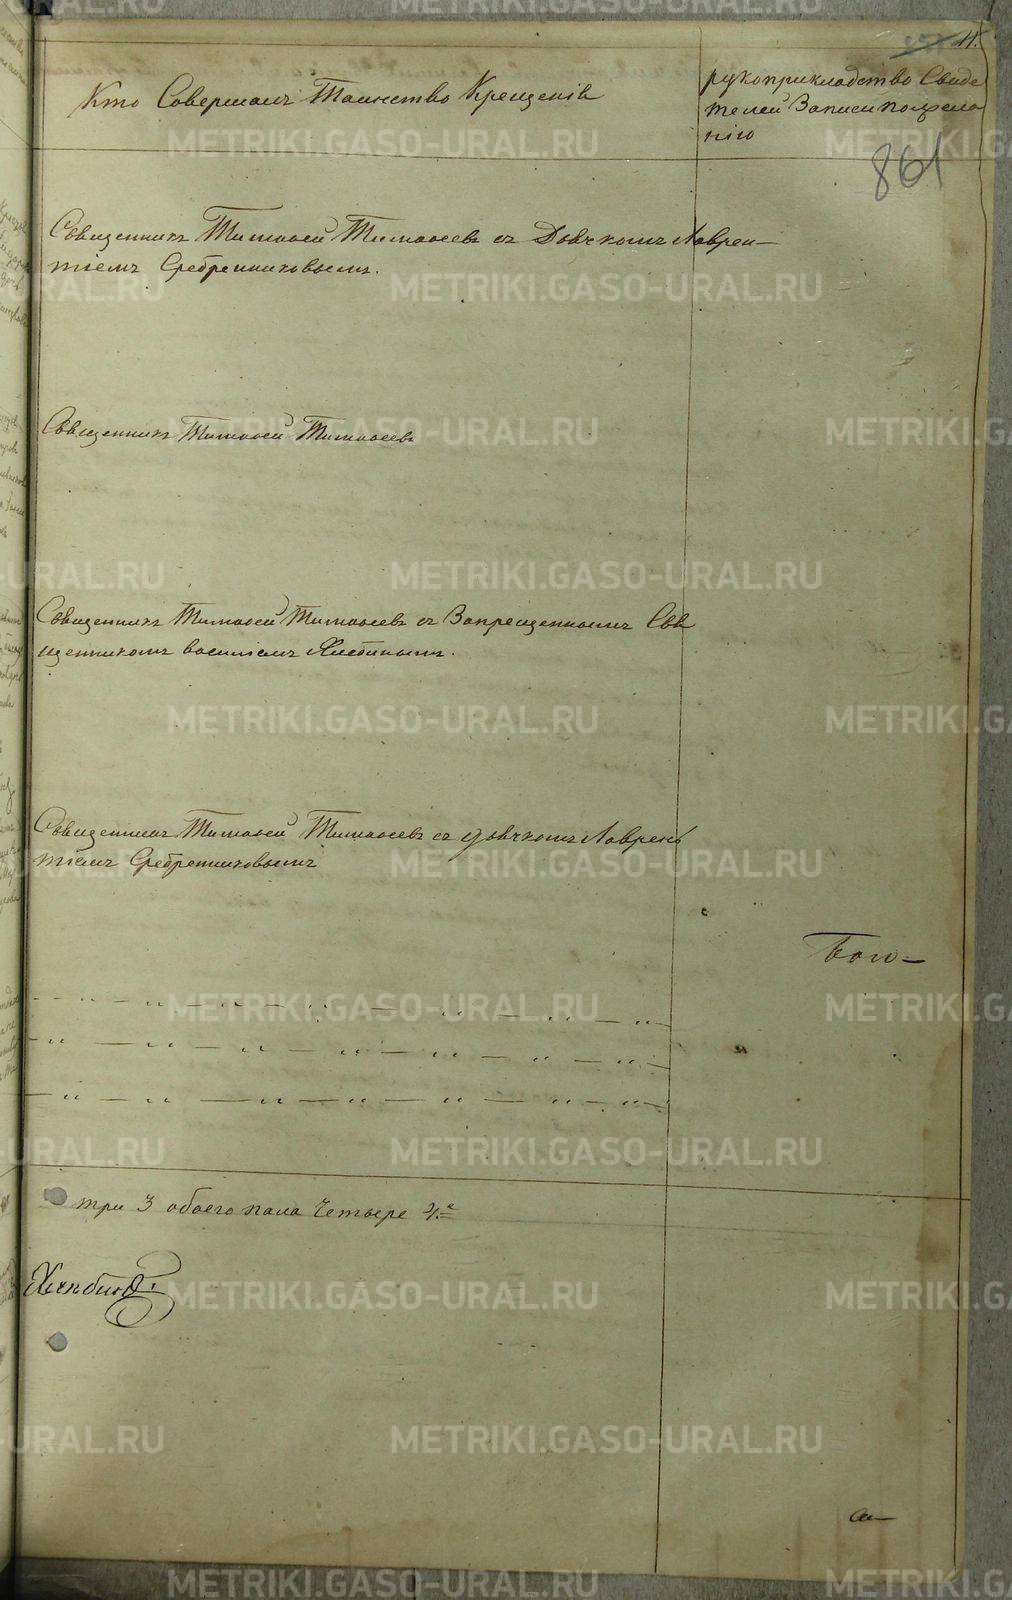 11.
Кто Совершалъ Таинство Крещенія
рукоприкладство Свиде
телей Записи по жела
нію
861
Священникъ Тимофей Тимофеевъ съ Дьячкомъ Лаврен–
тіемъ Сребренниковымъ.
Священникъ Тимофей Тимофеевъ
Священникъ Тимофей Тимофеевъ съ Запрещеннымъ Свя
щенникомъ Василіемъ Хлебинымъ.
Священникъ Тимофей Тимофеевъ съ дьячкомъ Лаврен
тіемъ Сребренниковымъ
Бого–
три 3 обоего пола Четыре 4.е
Хлебинъ
METRIKI.GASO-URAL.RU